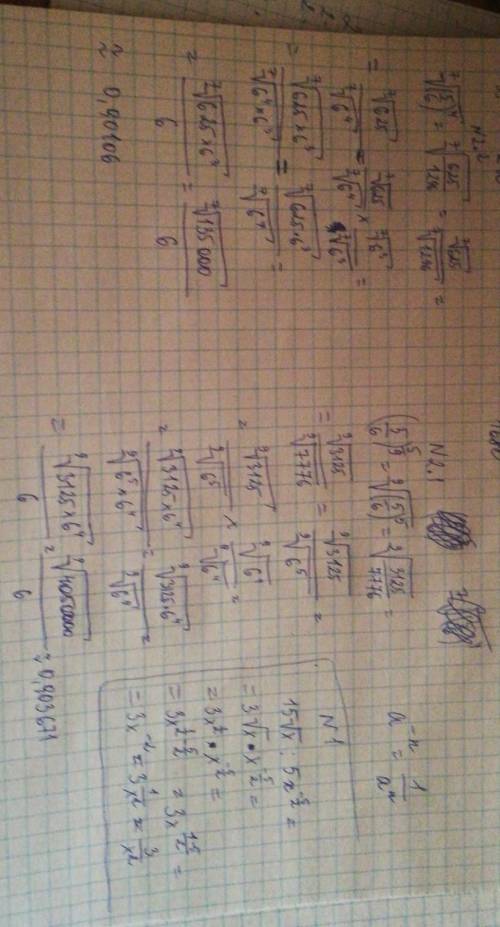 N2.2
⁷√(5/6)⁴ = ⁷√625/1296 = ⁷√625 / ⁷√1296 =
= ⁷√625 / ⁷√6⁴ = ⁷√625 / ⁷√6⁴ × ⁷√6³ / ⁷√6³ =
= ⁷√625×6³ / ⁷√6⁴×6³ = ⁷√625·6³ / ⁷√6⁷ =
= ⁷√625×6³ / 6 = ⁷√135000 / 6
≈ 0,90106
N2.1
(5/6)^(5/9) = ⁹√(5/6)⁵ = ⁹√3125/7776 =
= ⁹√3125 / ⁹√7776 = ⁹√3125 / ⁹√6⁵ =
= ⁹√3125 / ⁹√6⁵ × ⁹√6⁴ / ⁹√6⁴ =
= ⁹√3125×6⁴ / ⁹√6⁵×6⁴ = ⁹√3125·6⁴ / ⁹√6⁹ =
= ⁹√3125×6⁴ / 6 = ⁹√4050000 / 6 ≈ 0,903671
a⁻ⁿ = 1/aⁿ
N1
15√x : 5x^(5/2) =
= 3√x · x^(-5/2) =
= 3x^(1/2) · x^(-5/2) =
= 3x^(1/2-5/2) = 3x^((1-5)/2) =
= 3x⁻² = 3 1/x² = 3/x²